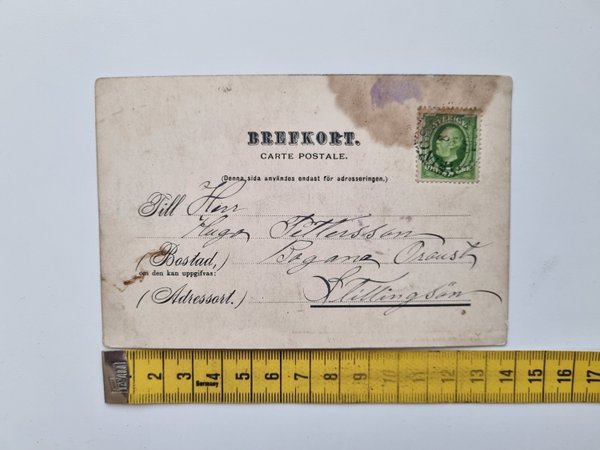 BREFKORT.
CARTE POSTALE.
(Denna sida användes endast för adresseringen.)
SVERIGE
Till Herr
Hugo Pettersson
(Bostad,)
om den kan uppgifvas:
(Adressort.)
2 3 4 5 6 7 8 9 10 11 12 13 14 15 16 17
Germany